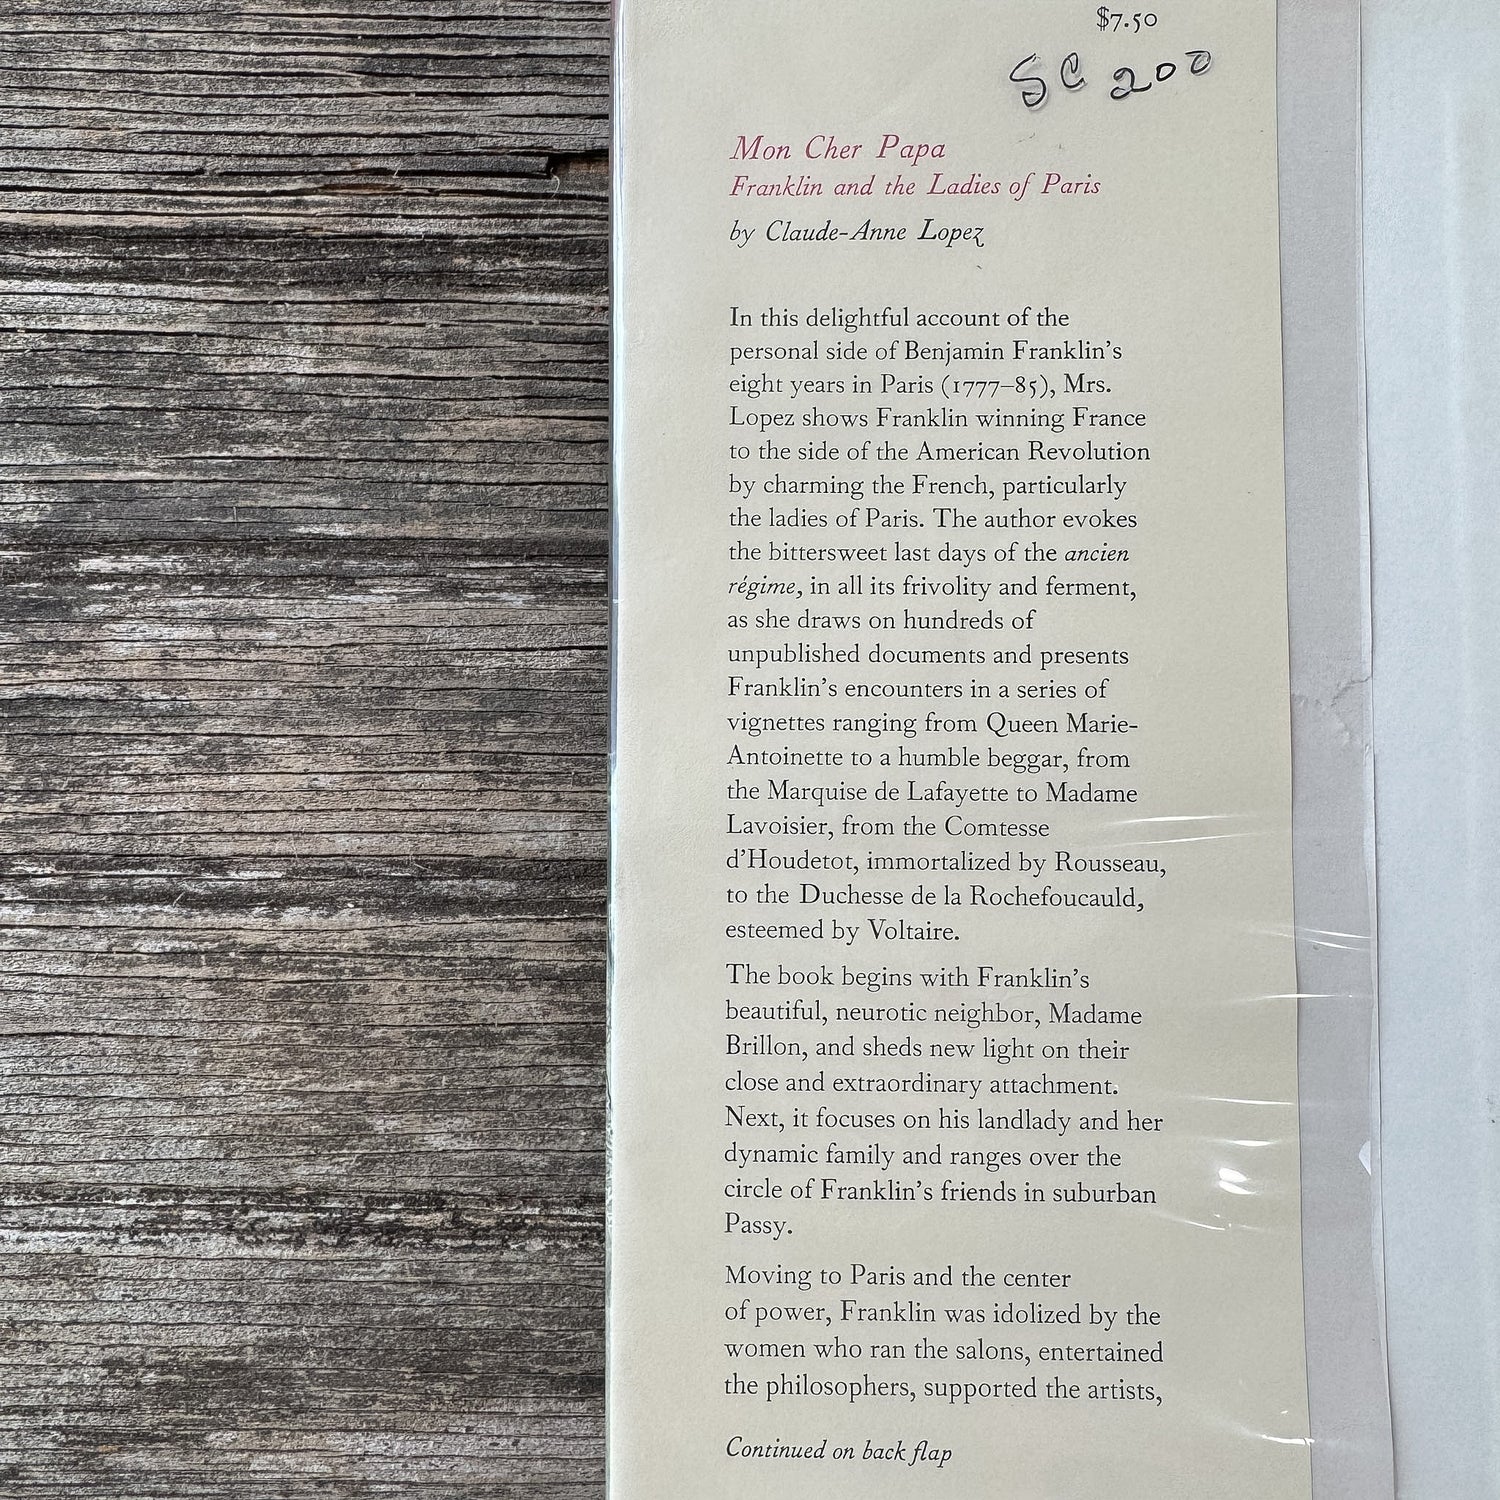 $7.50
SC 200
Mon Cher Papa
Franklin and the Ladies of Paris
by Claude-Anne Lopez
In this delightful account of the
personal side of Benjamin Franklin's
eight years in Paris (1777–85), Mrs.
Lopez shows Franklin winning France
to the side of the American Revolution
by charming the French, particularly
the ladies of Paris. The author evokes
the bittersweet last days of the ancien
régime, in all its frivolity and ferment,
as she draws on hundreds of
unpublished documents and presents
Franklin's encounters in a series of
vignettes ranging from Queen Marie-
Antoinette to a humble beggar, from
the Marquise de Lafayette to Madame
Lavoisier, from the Comtesse
d'Houdetot, immortalized by Rousseau,
to the Duchesse de la Rochefoucauld,
esteemed by Voltaire.
The book begins with Franklin's
beautiful, neurotic neighbor, Madame
Brillon, and sheds new light on their
close and extraordinary attachment.
Next, it focuses on his landlady and her
dynamic family and ranges over the
circle of Franklin's friends in suburban
Passy.
Moving to Paris and the center
of power, Franklin was idolized by the
women who ran the salons, entertained
the philosophers, supported the artists,
Continued on back flap